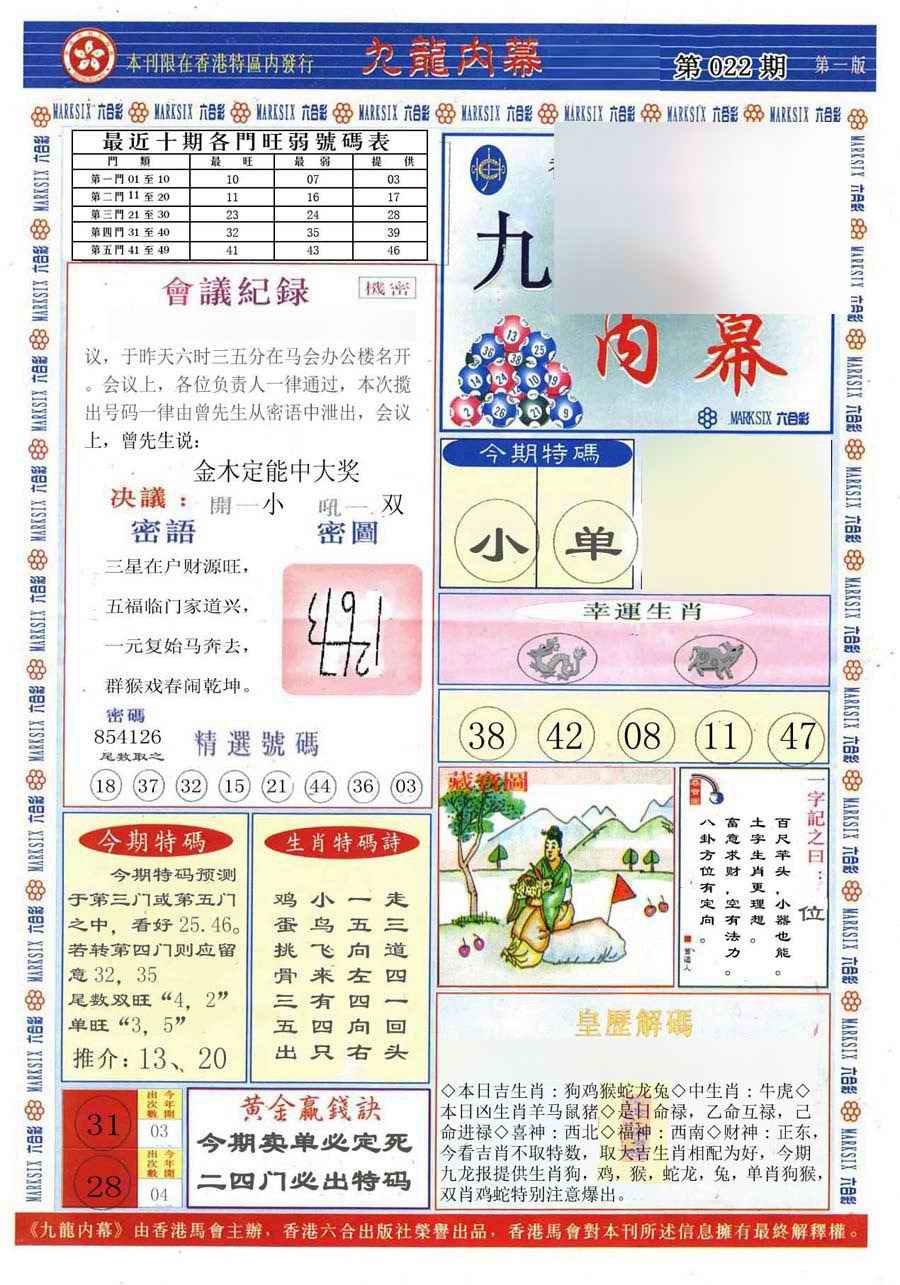 本刊限在香港特區内發行
九龍内幕
第 022 期
第一版
MARKSIX 六合彩 MARKSIX 六合彩 MARKSIX 六合彩 MARKSIX 六合彩 MARKSIX 六合彩 MARKSIX 六合彩 MARKSIX 六合彩 MARKSIX 六合彩
最近十期各門旺弱號碼表
門 類 最 旺 最 弱 提 供
第一門 01 至 10 10 07 03
第二門 11 至 20 11 16 17
第三門 21 至 30 23 24 28
第四門 31 至 40 32 35 39
第五門 41 至 49 41 43 46
九
内 幕
13
36 38 25
MARKSIX 六合彩
會議紀録
機密
议，于昨天六时三五分在马会办公楼名开
。会议上，各位负责人一律通过，本次揽
出号码一律由曾先生从密语中泄出，会议
上，曾先生说：
金木定能中大奖
决議：開一小 吼一 双
密語 密圖
三星在户财源旺，
五福临门家道兴，
一元复始马奔去，
群猴戏春闹乾坤。
密碼
854126
尾数取之
精選號碼
18 37 32 15 21 44 36 03
今期特碼
小 单
幸運生肖
38 42 08 11 47
藏寶圖
一字記之曰：位
百尺竿头，小器也能。
土字生肖更理想。
富意求财，空有法力。
八卦方位有定向。
曾道人
今期特碼
今期特码预测
于第三门或第五门
之中，看好 25.46。
若转第四门则应留
意 32，35
尾数双旺“4，2”
单旺“3，5”
推介：13、20
生肖特碼詩
鸡 小 一 走
蛋 鸟 五 三
挑 飞 向 道
骨 来 左 四
三 有 四 一
五 四 向 回
出 只 右 头
31
今年開出次數
03
28
今年開出次數
04
黄金赢錢訣
今期卖单必定死
二四门必出特码
皇歷解碼
◇本日吉生肖：狗鸡猴蛇龙兔◇中生肖：牛虎◇
本日凶生肖羊马鼠猪◇是日命禄，乙命互禄，己
命进禄◇喜神：西北◇福神：西南◇财神：正东，
今看吉肖不取特数，取大吉生肖相配为好，今期
九龙报提供生肖狗，鸡，猴，蛇龙，兔，单肖狗猴，
双肖鸡蛇特别注意爆出。
《九龍内幕》由香港馬會主辦，香港六合出版社榮譽出品，香港馬會對本刊所述信息擁有最終解釋權。